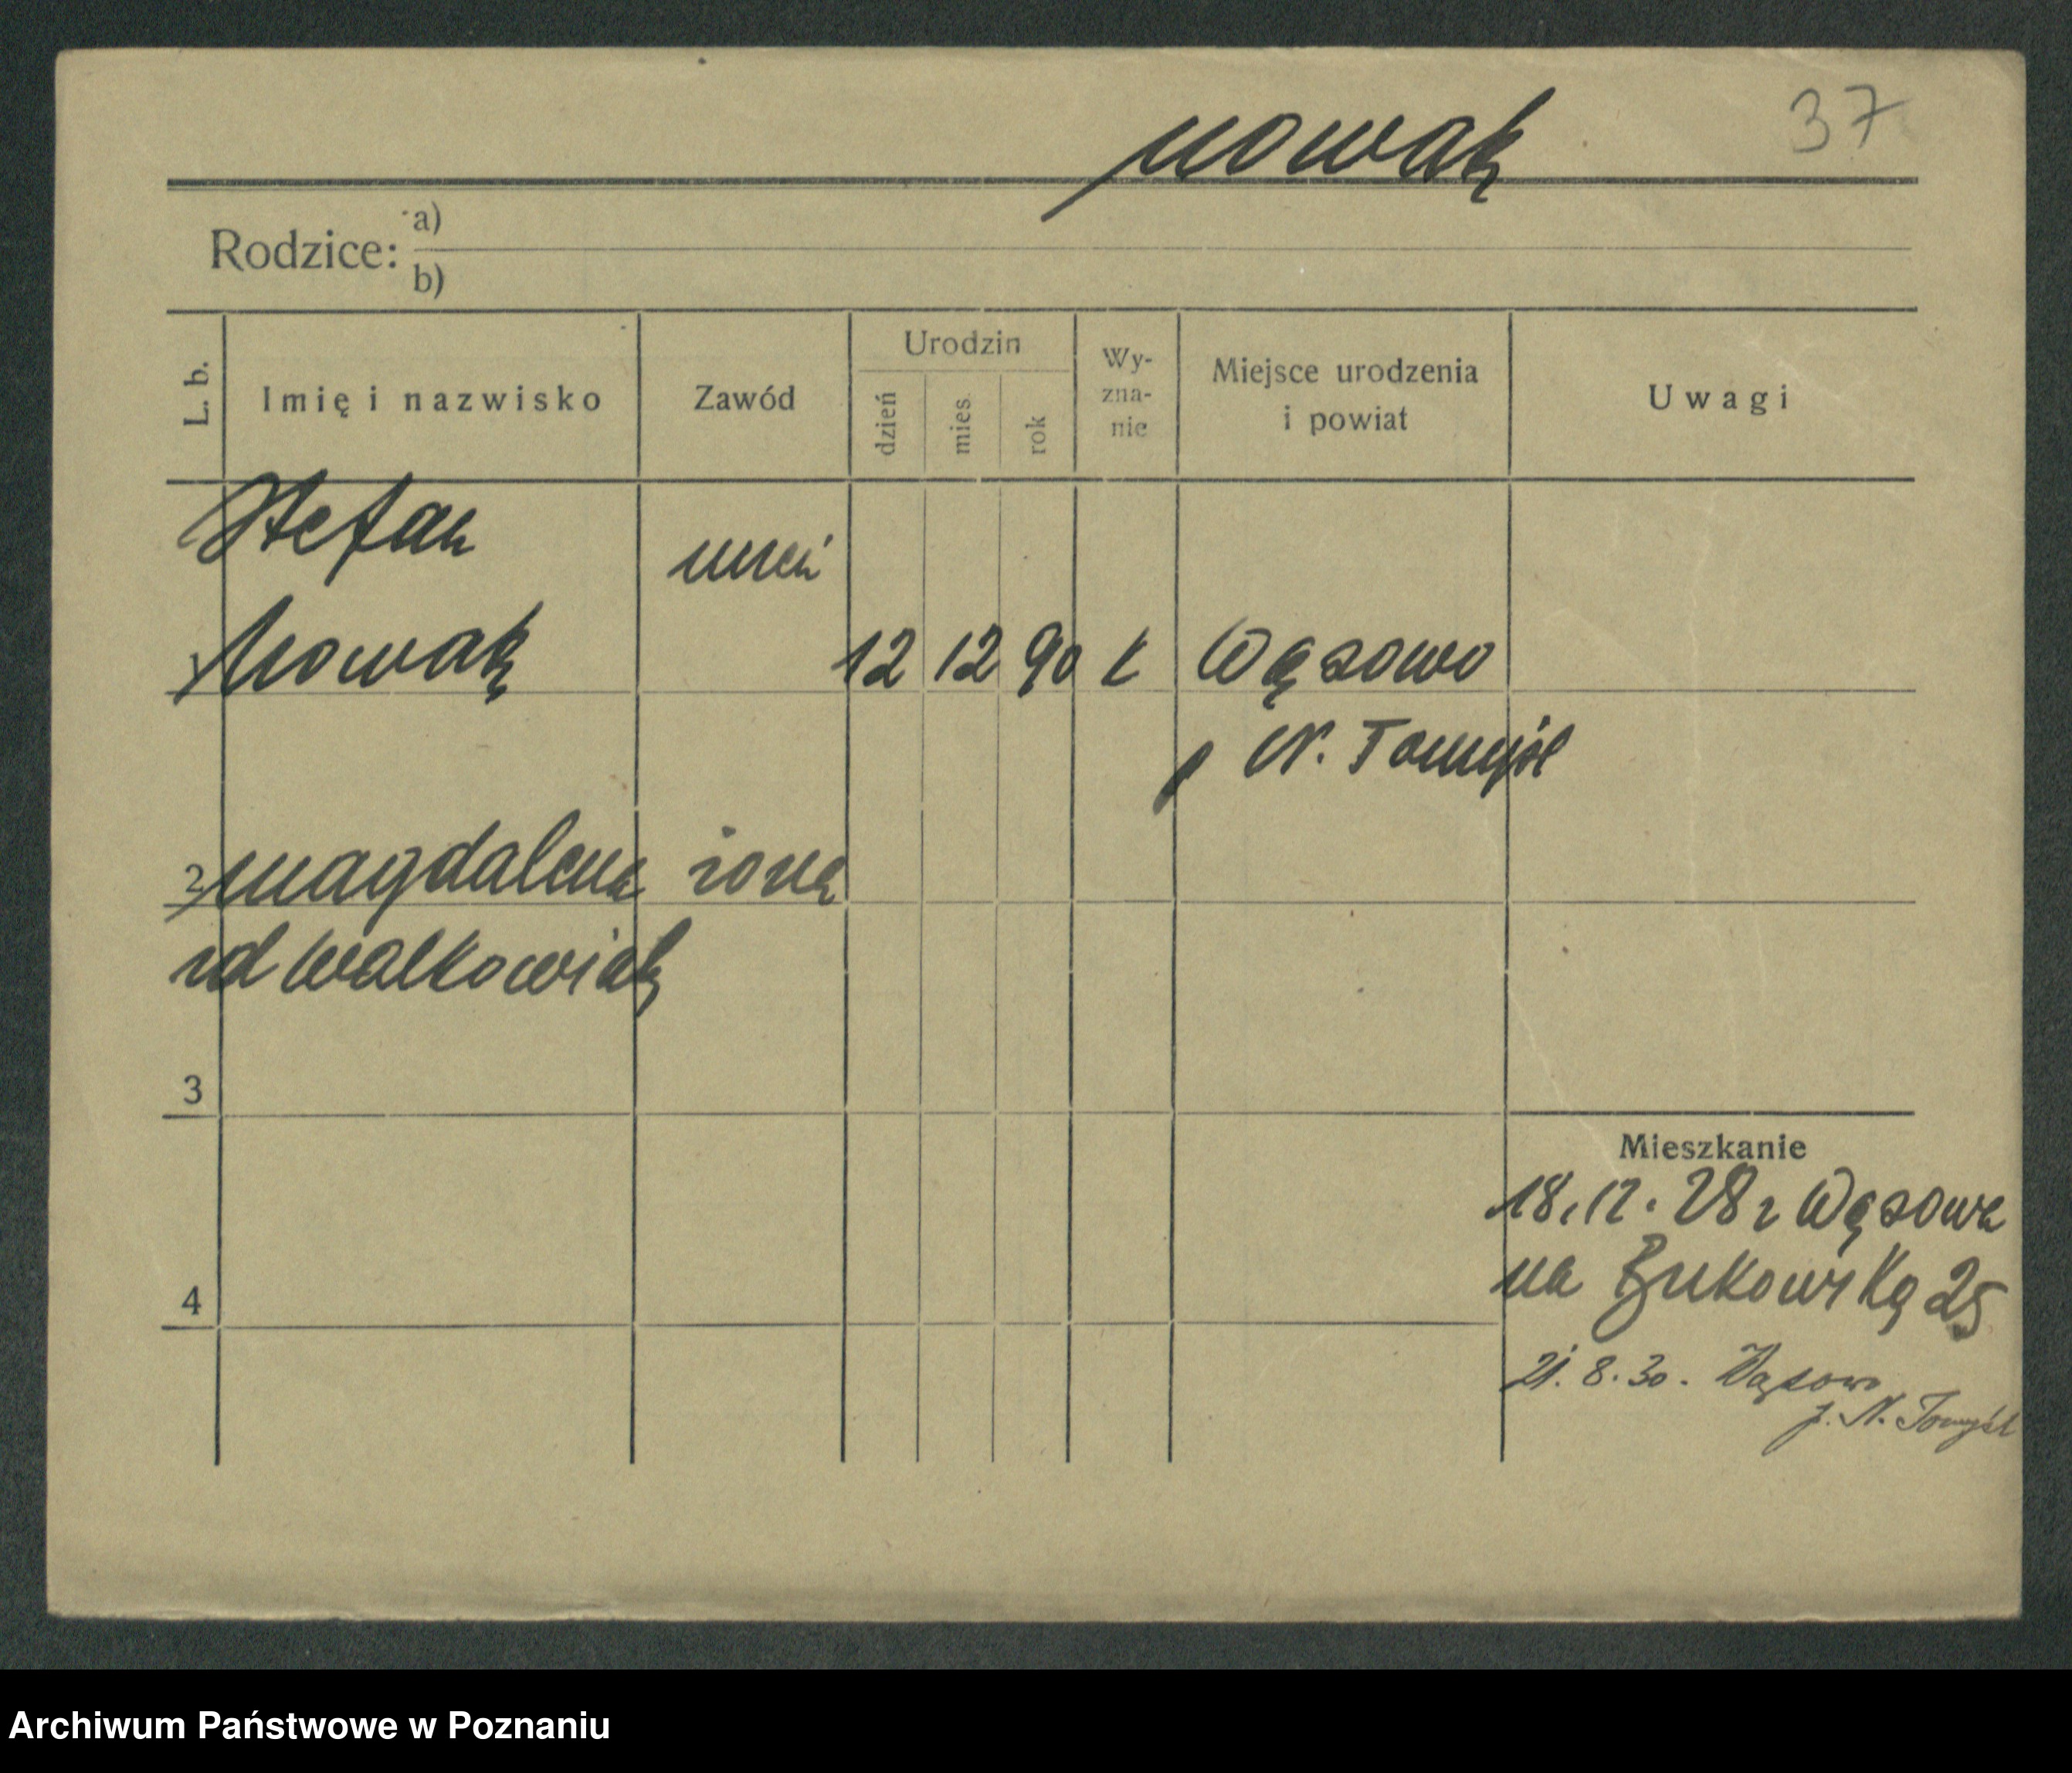 37
Nowak
Rodzice: a)
b)
L. b. Imię i nazwisko Zawód Urodzin dzień mies. rok Wy-zna-nie Miejsce urodzenia i powiat Uwagi
Stefan
1 Nowak 12 12 90 k Wąsowo
p N. Tomyśl
2 Magdalena żona
zd Walkowiak
3
Mieszkanie
18.12.28 z Wąsowa
na Bukowską 25
4
21.8.30. Wąsowo
p. N. Tomyśl
Archiwum Państwowe w Poznaniu